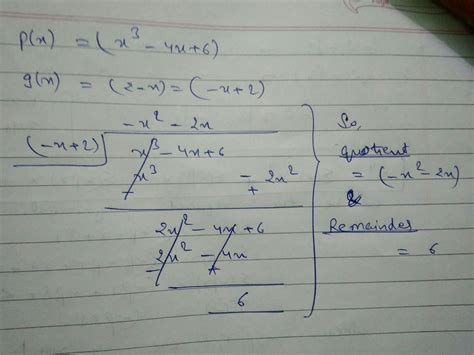 p(x) = (x³ - 4x + 6)
g(x) = (2-x) = (-x+2)
-x² - 2x
(-x+2) x³ - 4x + 6
x³ - 2x²
- +
2x² - 4x + 6
2x² - 4x
- +
6
So,
quotient
= (-x² - 2x)
&
Remainder
= 6